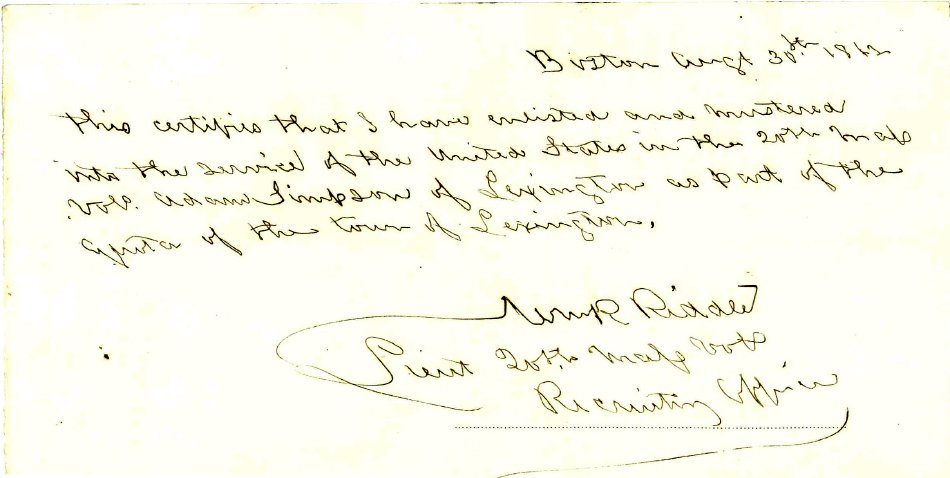 Boston Augt 30th 1862
This certifies that I have enlisted and mustered
into the service of the United States in the 20th Mass
Vols. Adam Simpson of Lexington as part of the
Quota of the town of Lexington.
Wm R Riddle
Lieut 20th Mass Vols
Recruiting Officer